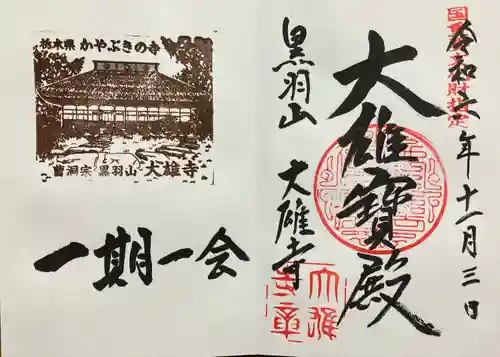 国
財指定
令和六年十一月三日
大雄寳殿
黒羽山 大雄寺
大雄
寺章
栃木県 かやぶきの寺
曹洞宗 黒羽山 大雄寺
一期一会